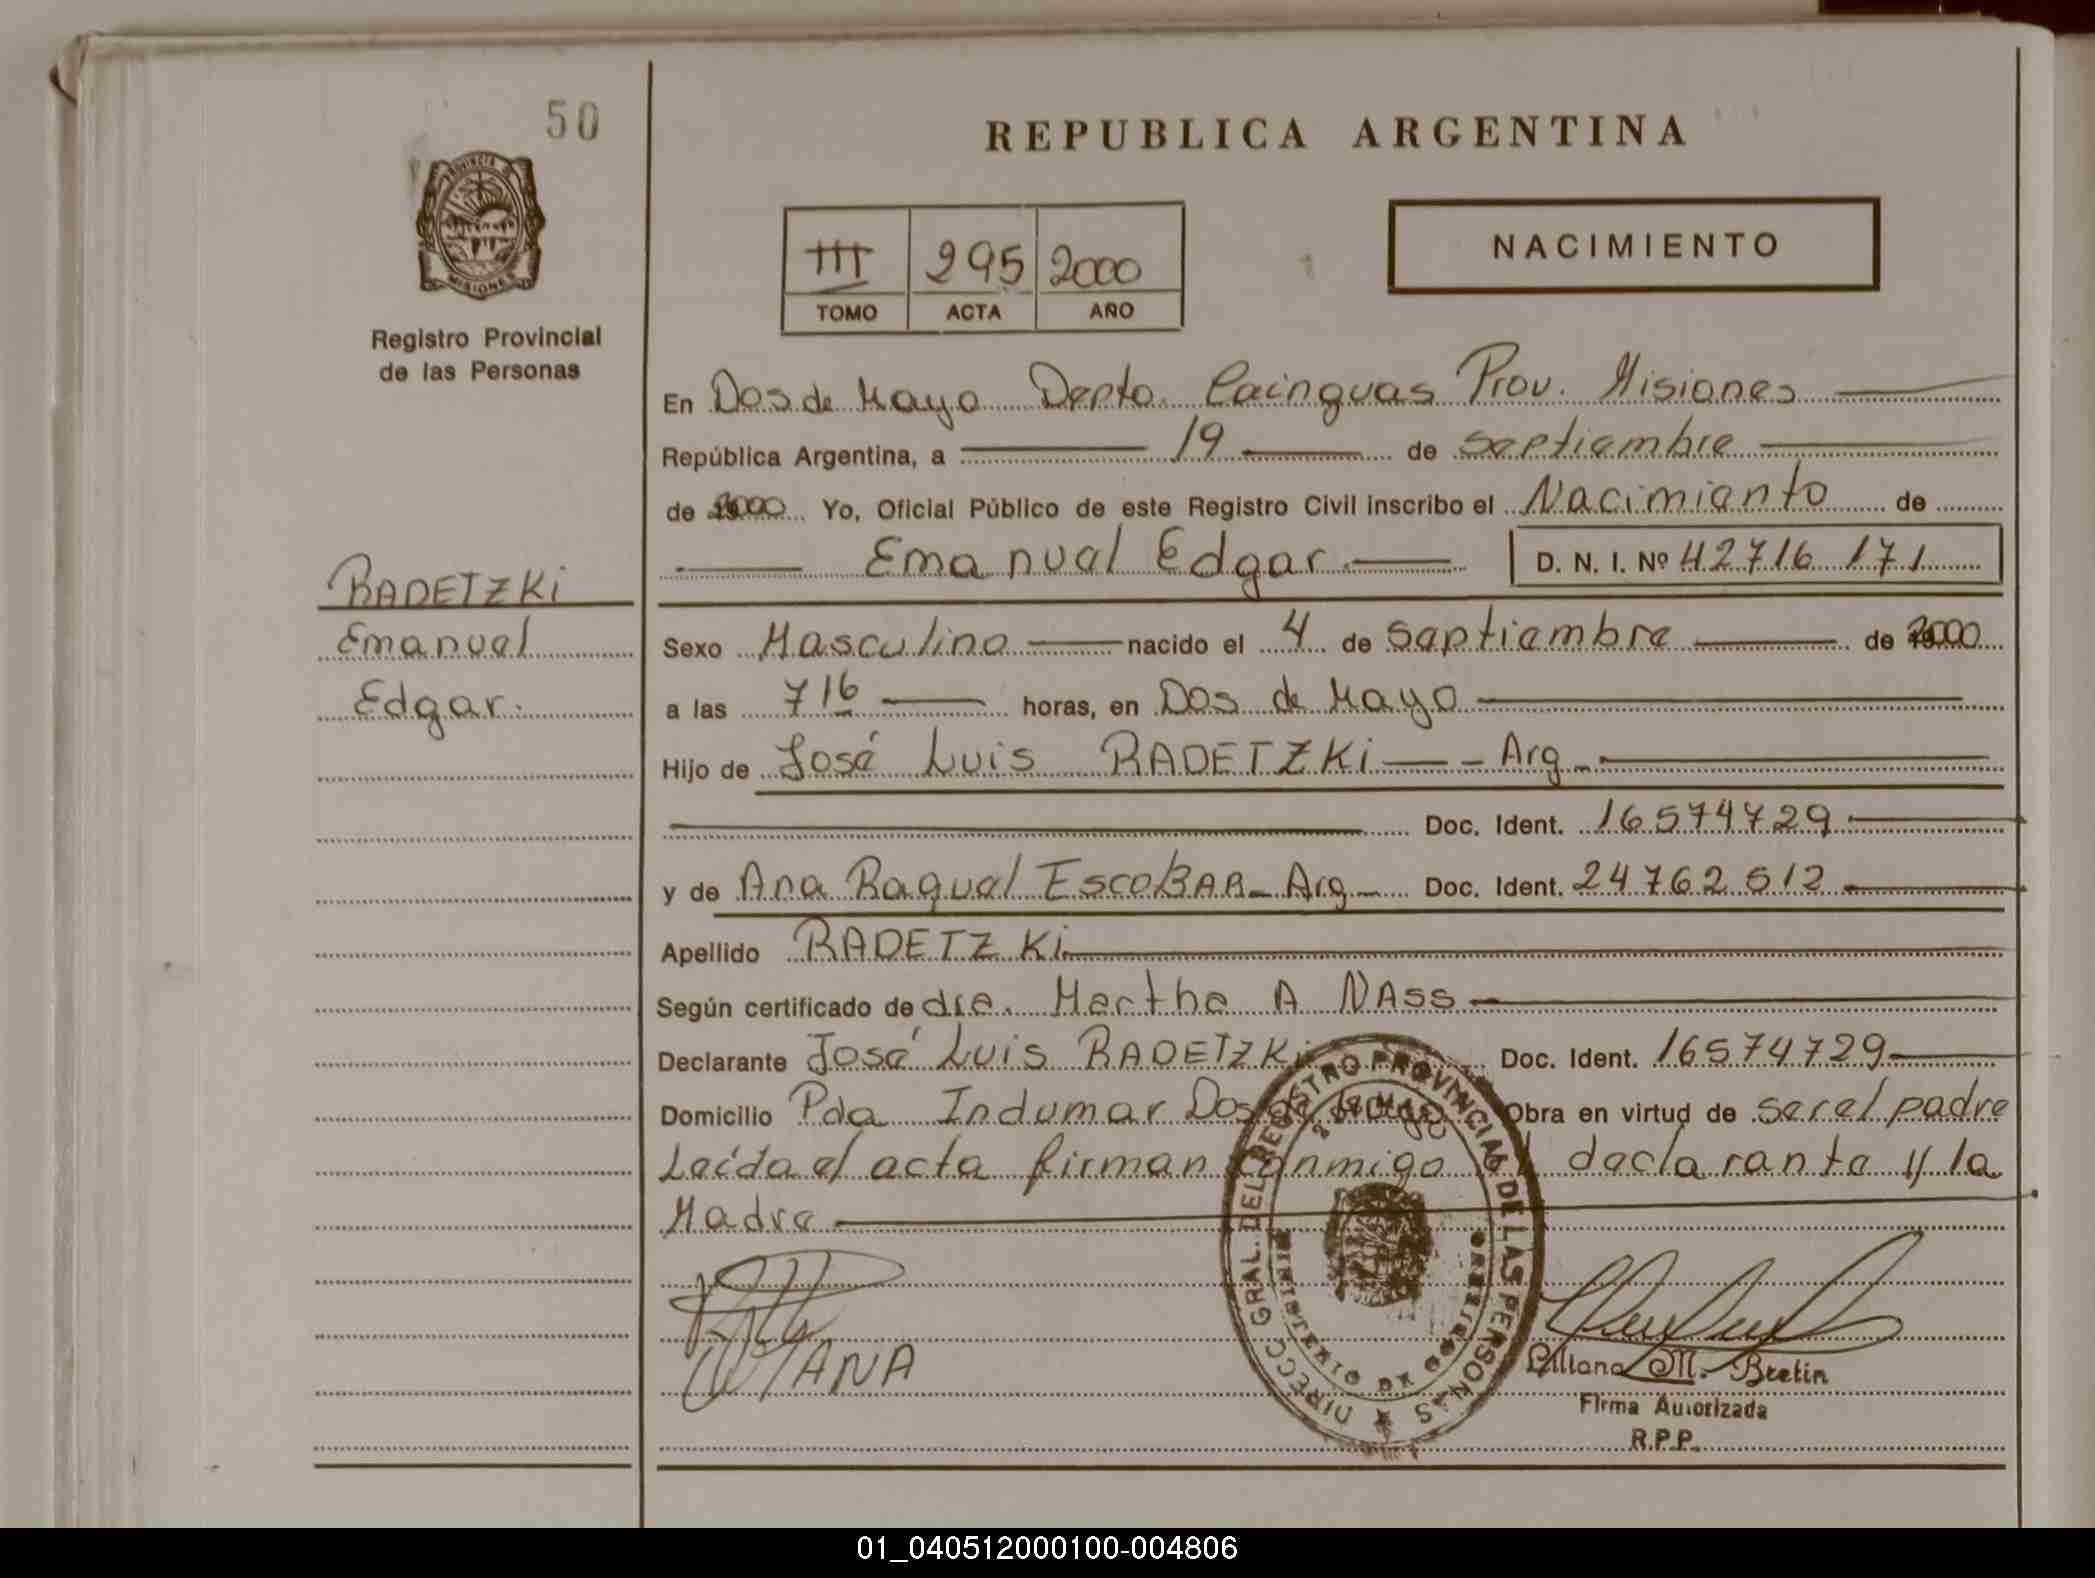 50
REPUBLICA ARGENTINA
PROVINCIA DE
MISIONES
Registro Provincial
de las Personas
III 295 2000
TOMO ACTA AÑO
NACIMIENTO
En Dos de Mayo Depto. Cainguas Prov. Misiones
República Argentina, a 19 de septiembre
de 2000 Yo, Oficial Público de este Registro Civil inscribo el Nacimiento de
Emanuel Edgar D. N. I. Nº 42716 171
RADETZKi
Emanuel
Edgar.
Sexo Masculino nacido el 4 de septiembre de 2000
a las 7 16 horas, en Dos de Mayo
Hijo de José Luis RADETZKi - Arg -
Doc. Ident. 16574729
y de Ana Raquel EscoBAR - Arg - Doc. Ident. 24762512
Apellido RADETZKi
Según certificado de dra. Martha A NAss
Declarante José Luis RADETZKi Doc. Ident. 16574729
Domicilio Pda Indumar Dos de Mayo Obra en virtud de ser el padre
Leída el acta firman conmigo el declarante y la
Madre
ANA
DIRECC. GRAL. DEL REGISTRO PROVINCIAL DE LAS PERSONAS
MINISTERIO DE GOBIERNO
Liliana M. Bretin
Firma Autorizada
R.P.P.
01_040512000100-004806